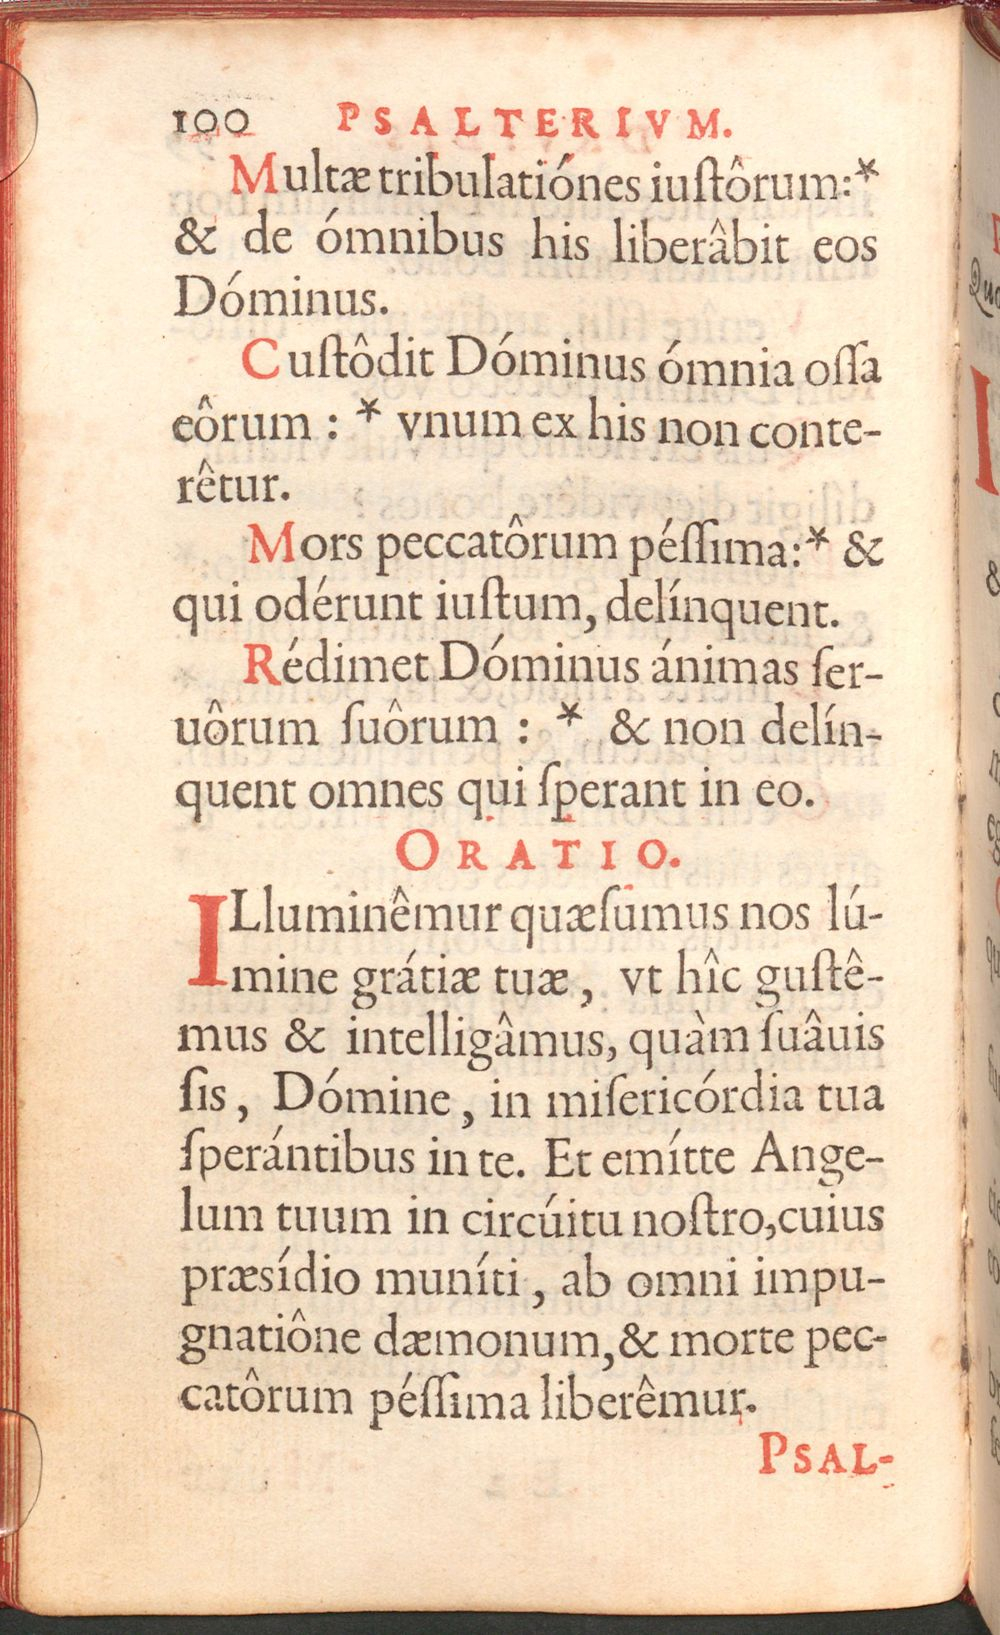 100 PSALTERIVM.
Multæ tribulatiónes iuſtôrum:*
& de ómnibus his liberâbit eos
Dóminus.
Cuſtôdit Dóminus ómnia oſſa
eôrum : * vnum ex his non conte-
rêtur.
Mors peccatôrum péſſima:* &
qui odérunt iuſtum, delínquent.
Rédimet Dóminus ánimas ſer-
uôrum ſuôrum : * & non delín-
quent omnes qui ſperant in eo.
ORATIO.
ILluminêmur quæſumus nos lú-
mine grátiæ tuæ, vt hîc guſtê-
mus & intelligâmus, quàm ſuâuis
ſis, Dómine, in miſericórdia tua
ſperántibus in te. Et emítte Ange-
lum tuum in circúitu noſtro, cuius
præsídio muníti, ab omni impu-
gnatiône dæmonum, & morte pec-
catôrum péſſima liberêmur.
PSAL-